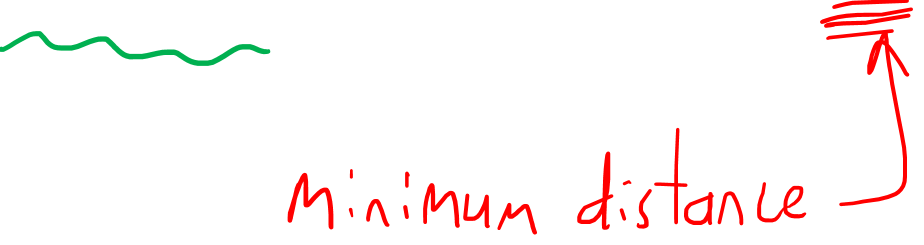 Minimum distance